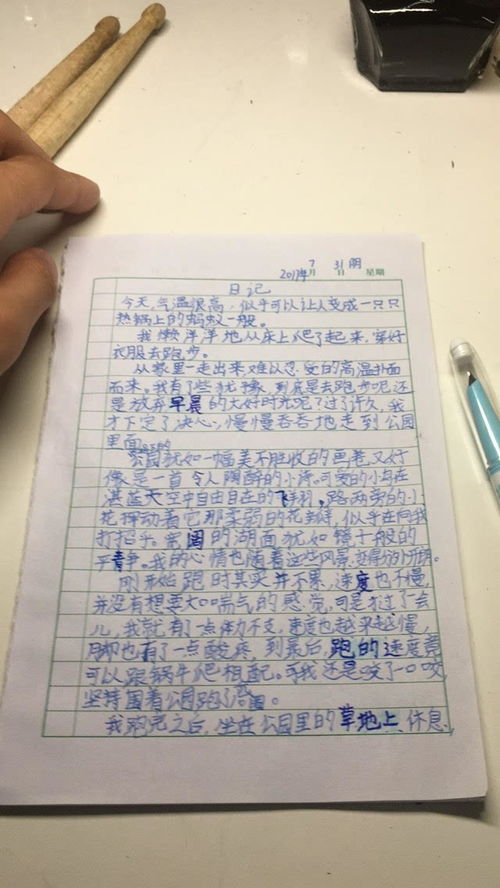 2017年7月31日 阴 星期
日记
今天,气温很高,似乎可以让人变成一只只
热锅上的蚂蚁一般。
我懒洋洋地从床上爬了起来,穿好
衣服去跑步。
从家里一走出来难以忍受的高温扑面
而来。我有了些犹豫,到底是去跑步呢还
是放弃早晨的大好时光呢?过了许久,我
才下定了决心,慢慢吞吞地走到公园
里面
公园就如一幅美不胜收的画卷,又好
像是一首令人陶醉的小诗。可爱的小鸟在
湛蓝天空中自由自在的飞翔。路两旁的小
花挥动着它那柔弱的花瓣,似乎在向我
打招手。宽阔的湖面犹如镜子般的
平静。我的心情也随着这些风景,变得分外开朗。
刚开始跑时其实并不累,速度也不慢,
并没有想要大口喘气的感觉,可是才过了一会
儿,我就有了一点体力不支,速度也越来越慢,
脚也有了一点酸疼,到最后,跑的速度竟
可以跟蜗牛爬相配。可我还是咬了一口咬
坚持围着公园跑了
我跑完之后,坐在公园里的草地上,休息,